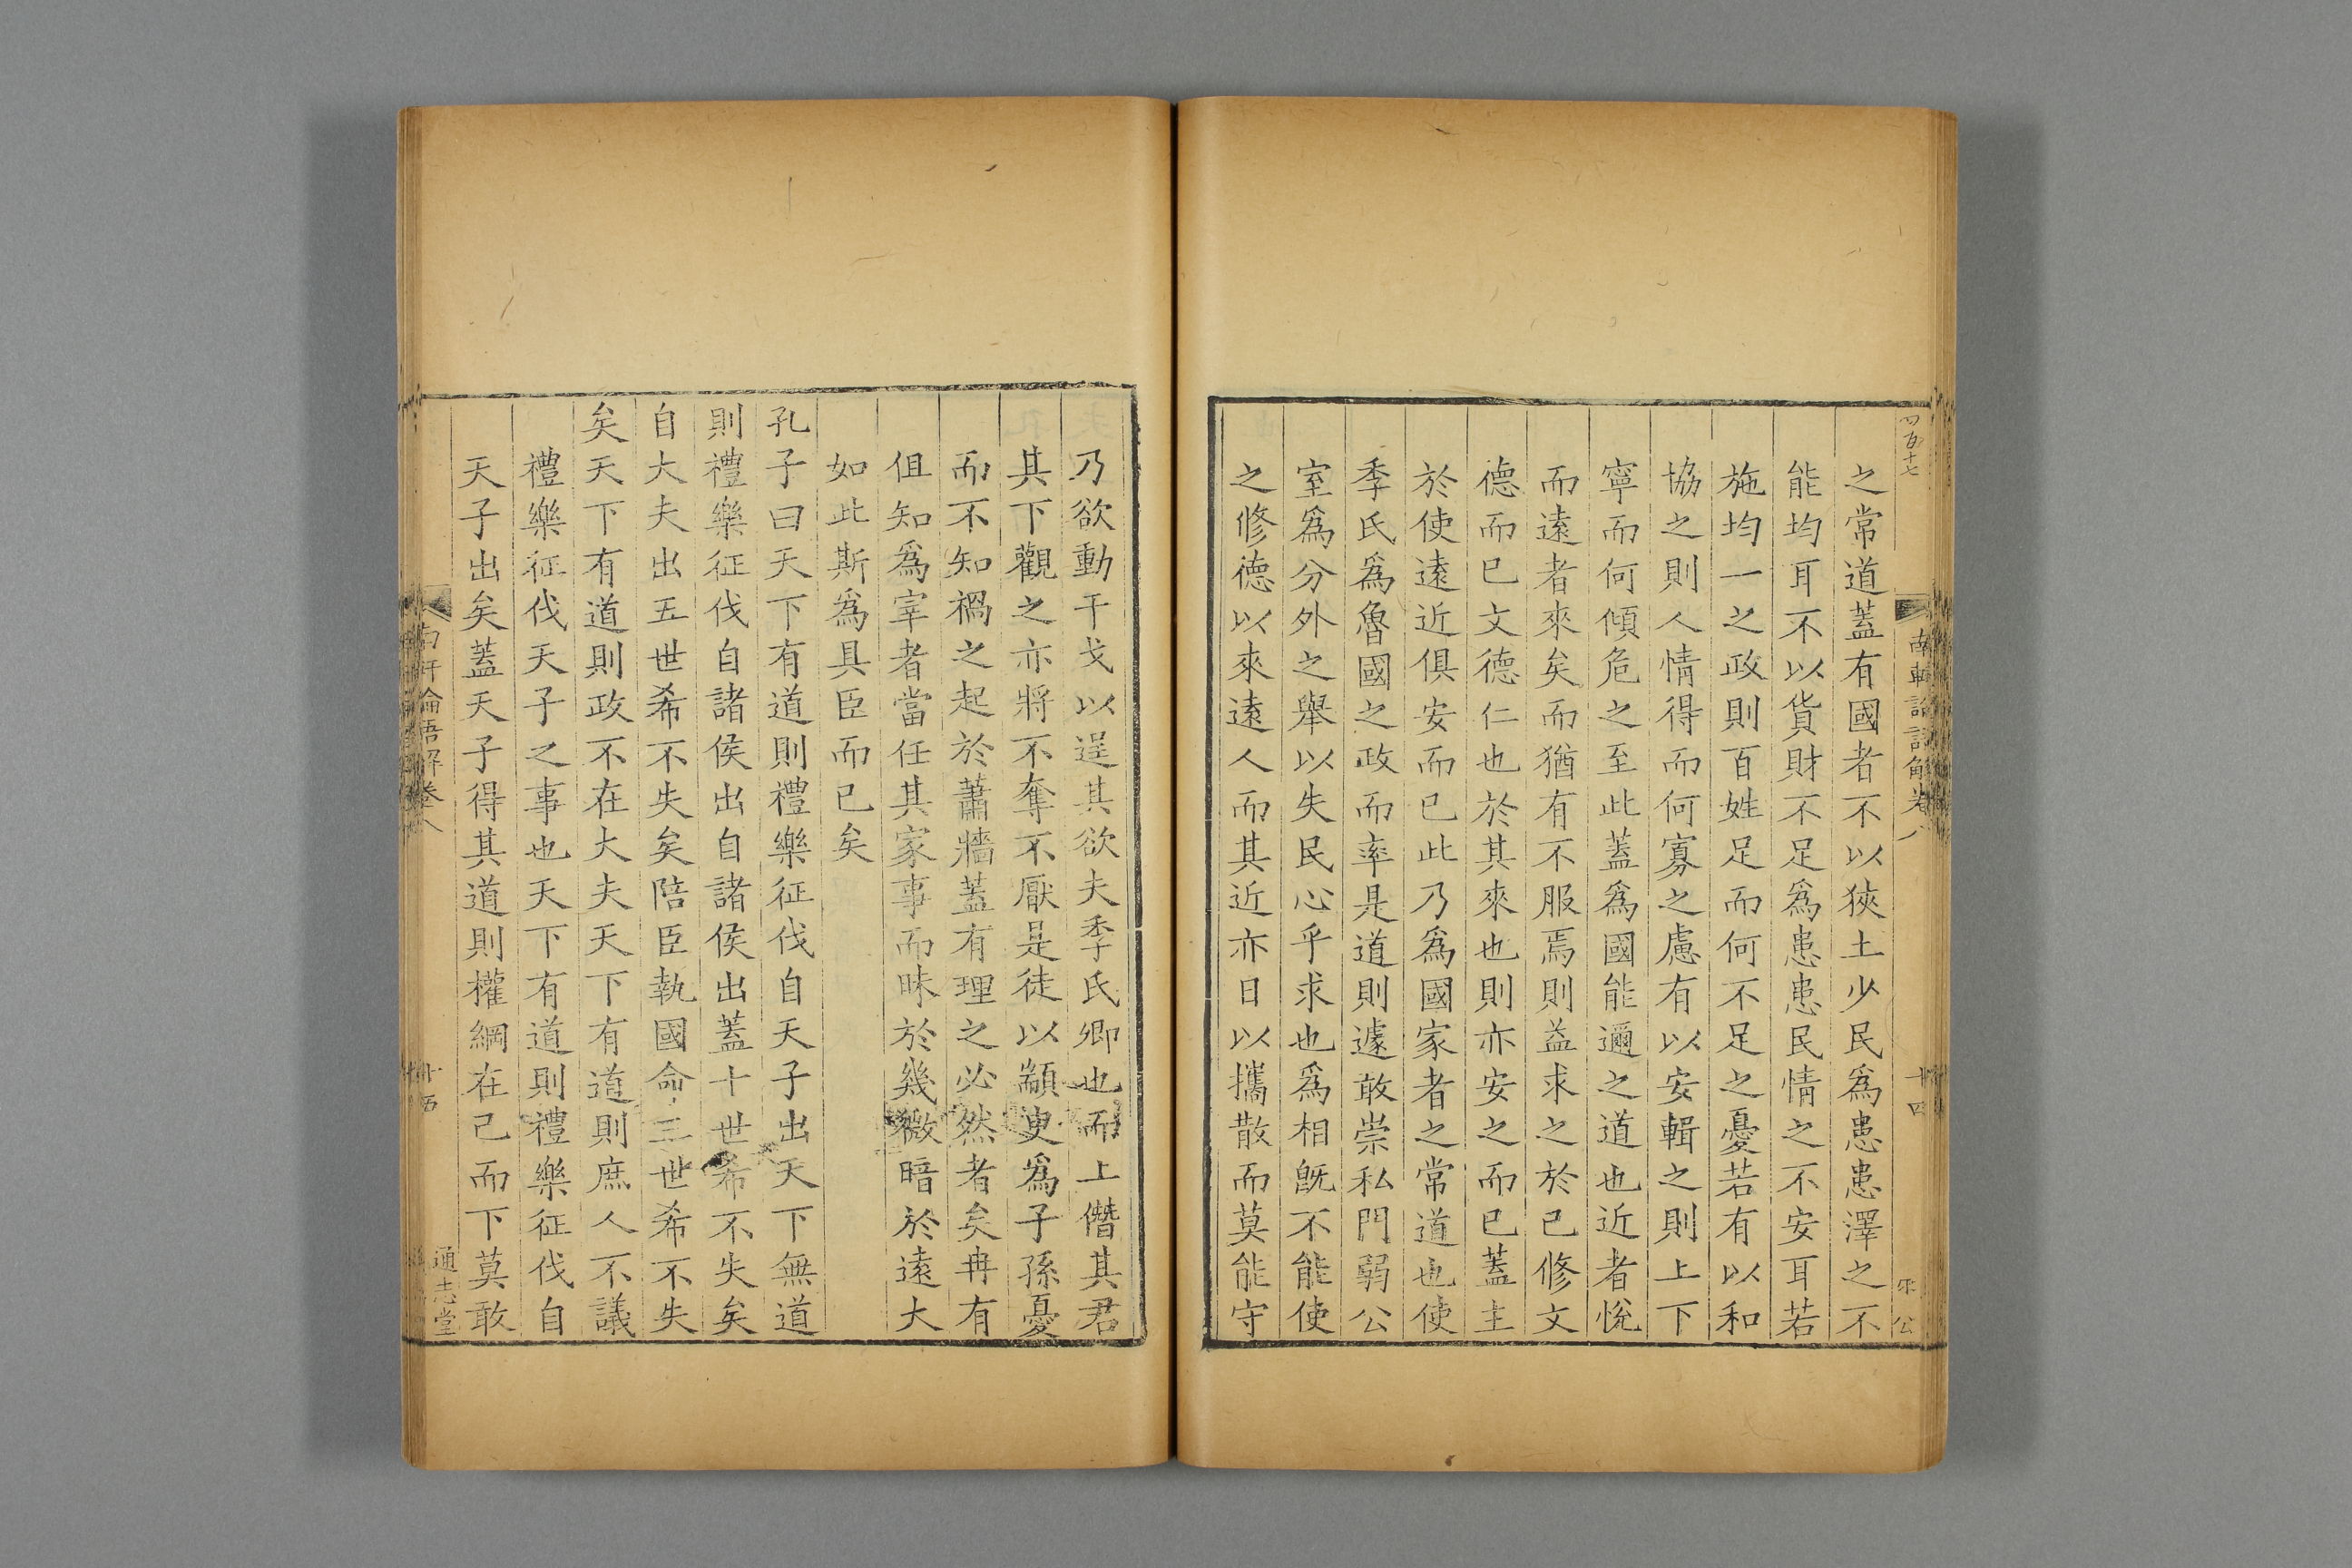 四百十七
南軒論語解卷八
十四
之常道蓋有國者不以狹土少民爲患患澤之不
能均耳不以貨財不足爲患患民情之不安耳若
施均一之政則百姓足而何不足之憂若有以和
協之則人情得而何寡之慮有以安輯之則上下
寧而何傾危之至此蓋爲國能邇之道也近者悅
而遠者來矣而猶有不服焉則益求之於己修文
德而已文德仁也於其來也則亦安之而已蓋主
於使遠近俱安而已此乃爲國家者之常道也使
季氏爲魯國之政而率是道則遽敢崇私門弱公
室爲分外之舉以失民心乎求也爲相旣不能使
之修德以來遠人而其近亦日以攜散而莫能守
乃欲動干戈以逞其欲夫季氏卿也而上僭其君
其下觀之亦將不奪不厭是徒以顓臾爲子孫憂
而不知禍之起於蕭牆蓋有理之必然者矣冉有
但知爲宰者當任其家事而昧於幾微暗於遠大
如此斯爲具臣而已矣
孔子曰天下有道則禮樂征伐自天子出天下無道
則禮樂征伐自諸侯出自諸侯出蓋十世希不失矣
自大夫出五世希不失矣陪臣執國命三世希不失
矣天下有道則政不在大夫天下有道則庶人不議
禮樂征伐天子之事也天下有道則禮樂征伐自
天子出矣蓋天子得其道則權綱在己而下莫敢
南軒論語解卷八
十五
通志堂